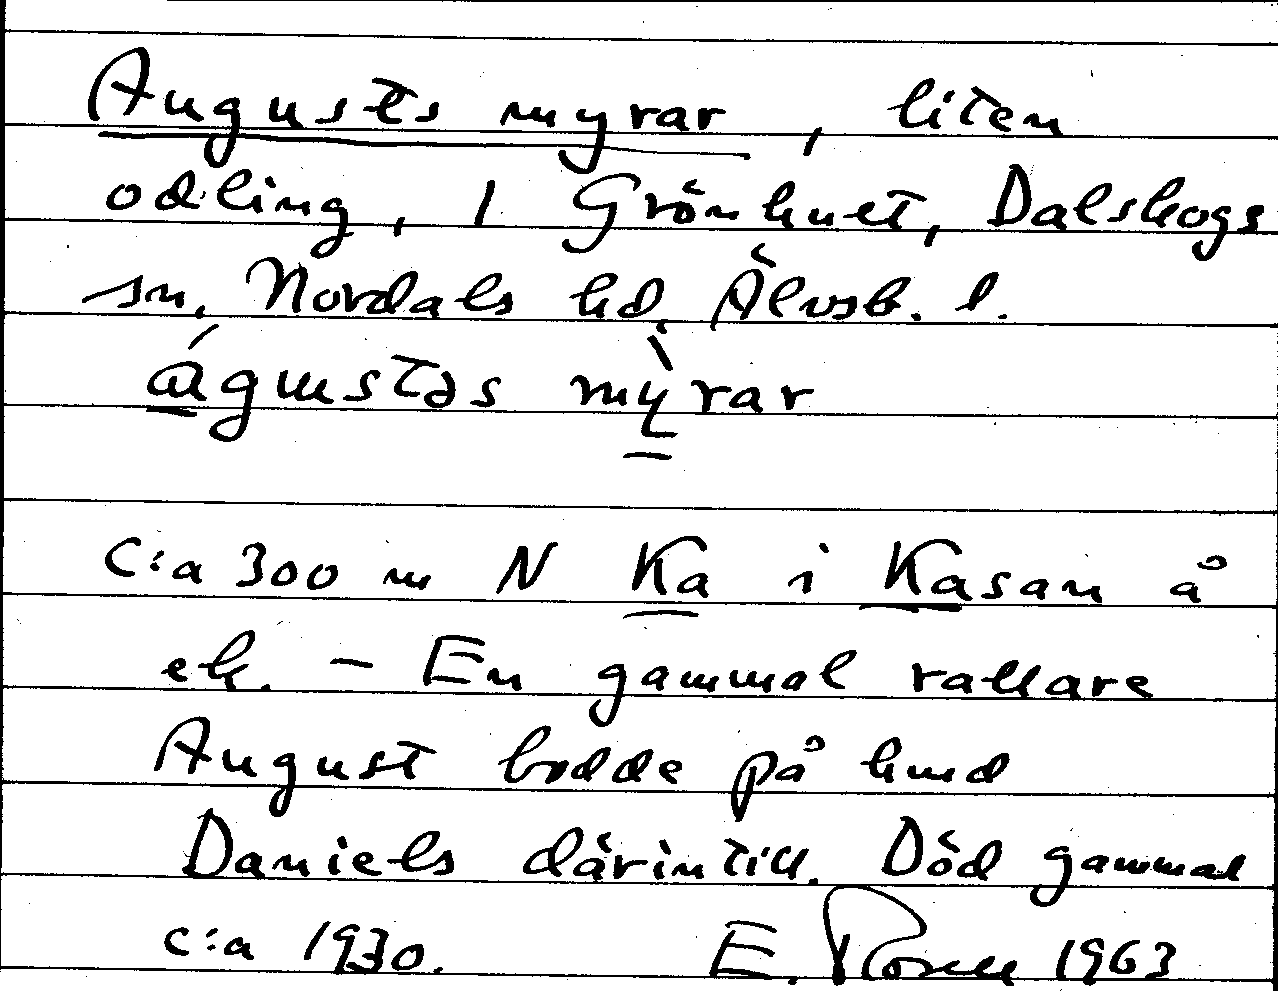 Augusts myrar, liten
odling, 1 Grönhult, Dalskogs
sn, Nordals hd, Älvsb. l.
águstəs mỳrar
C:a 300 m N Ka i Kasan å
ek. – En gammal rallare
August bodde på hmd
Daniels därintill. Död gammal
c:a 1930. E. Rosell 1963